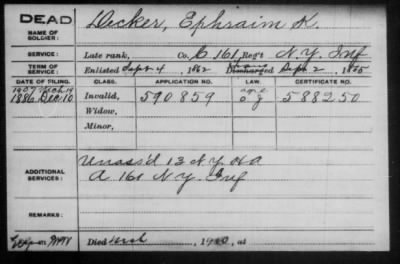 DEAD
NAME OF SOLDIER:
Decker, Ephraim K.
SERVICE:
Late rank, Co. C 161 Reg't N.Y. Inf
TERM OF SERVICE:
Enlisted Sept. 4 1862 Discharged Sept. 2, 1865
DATE OF FILING. CLASS. APPLICATION NO. LAW. CERTIFICATE NO.
1907
1886 Dec. 10 Invalid, 590.859 588250
Widow,
Minor,
ADDITIONAL SERVICES:
Unass'd 13 N.Y. HA
A 161 N.Y. Inf
REMARKS:
Died 19 , at